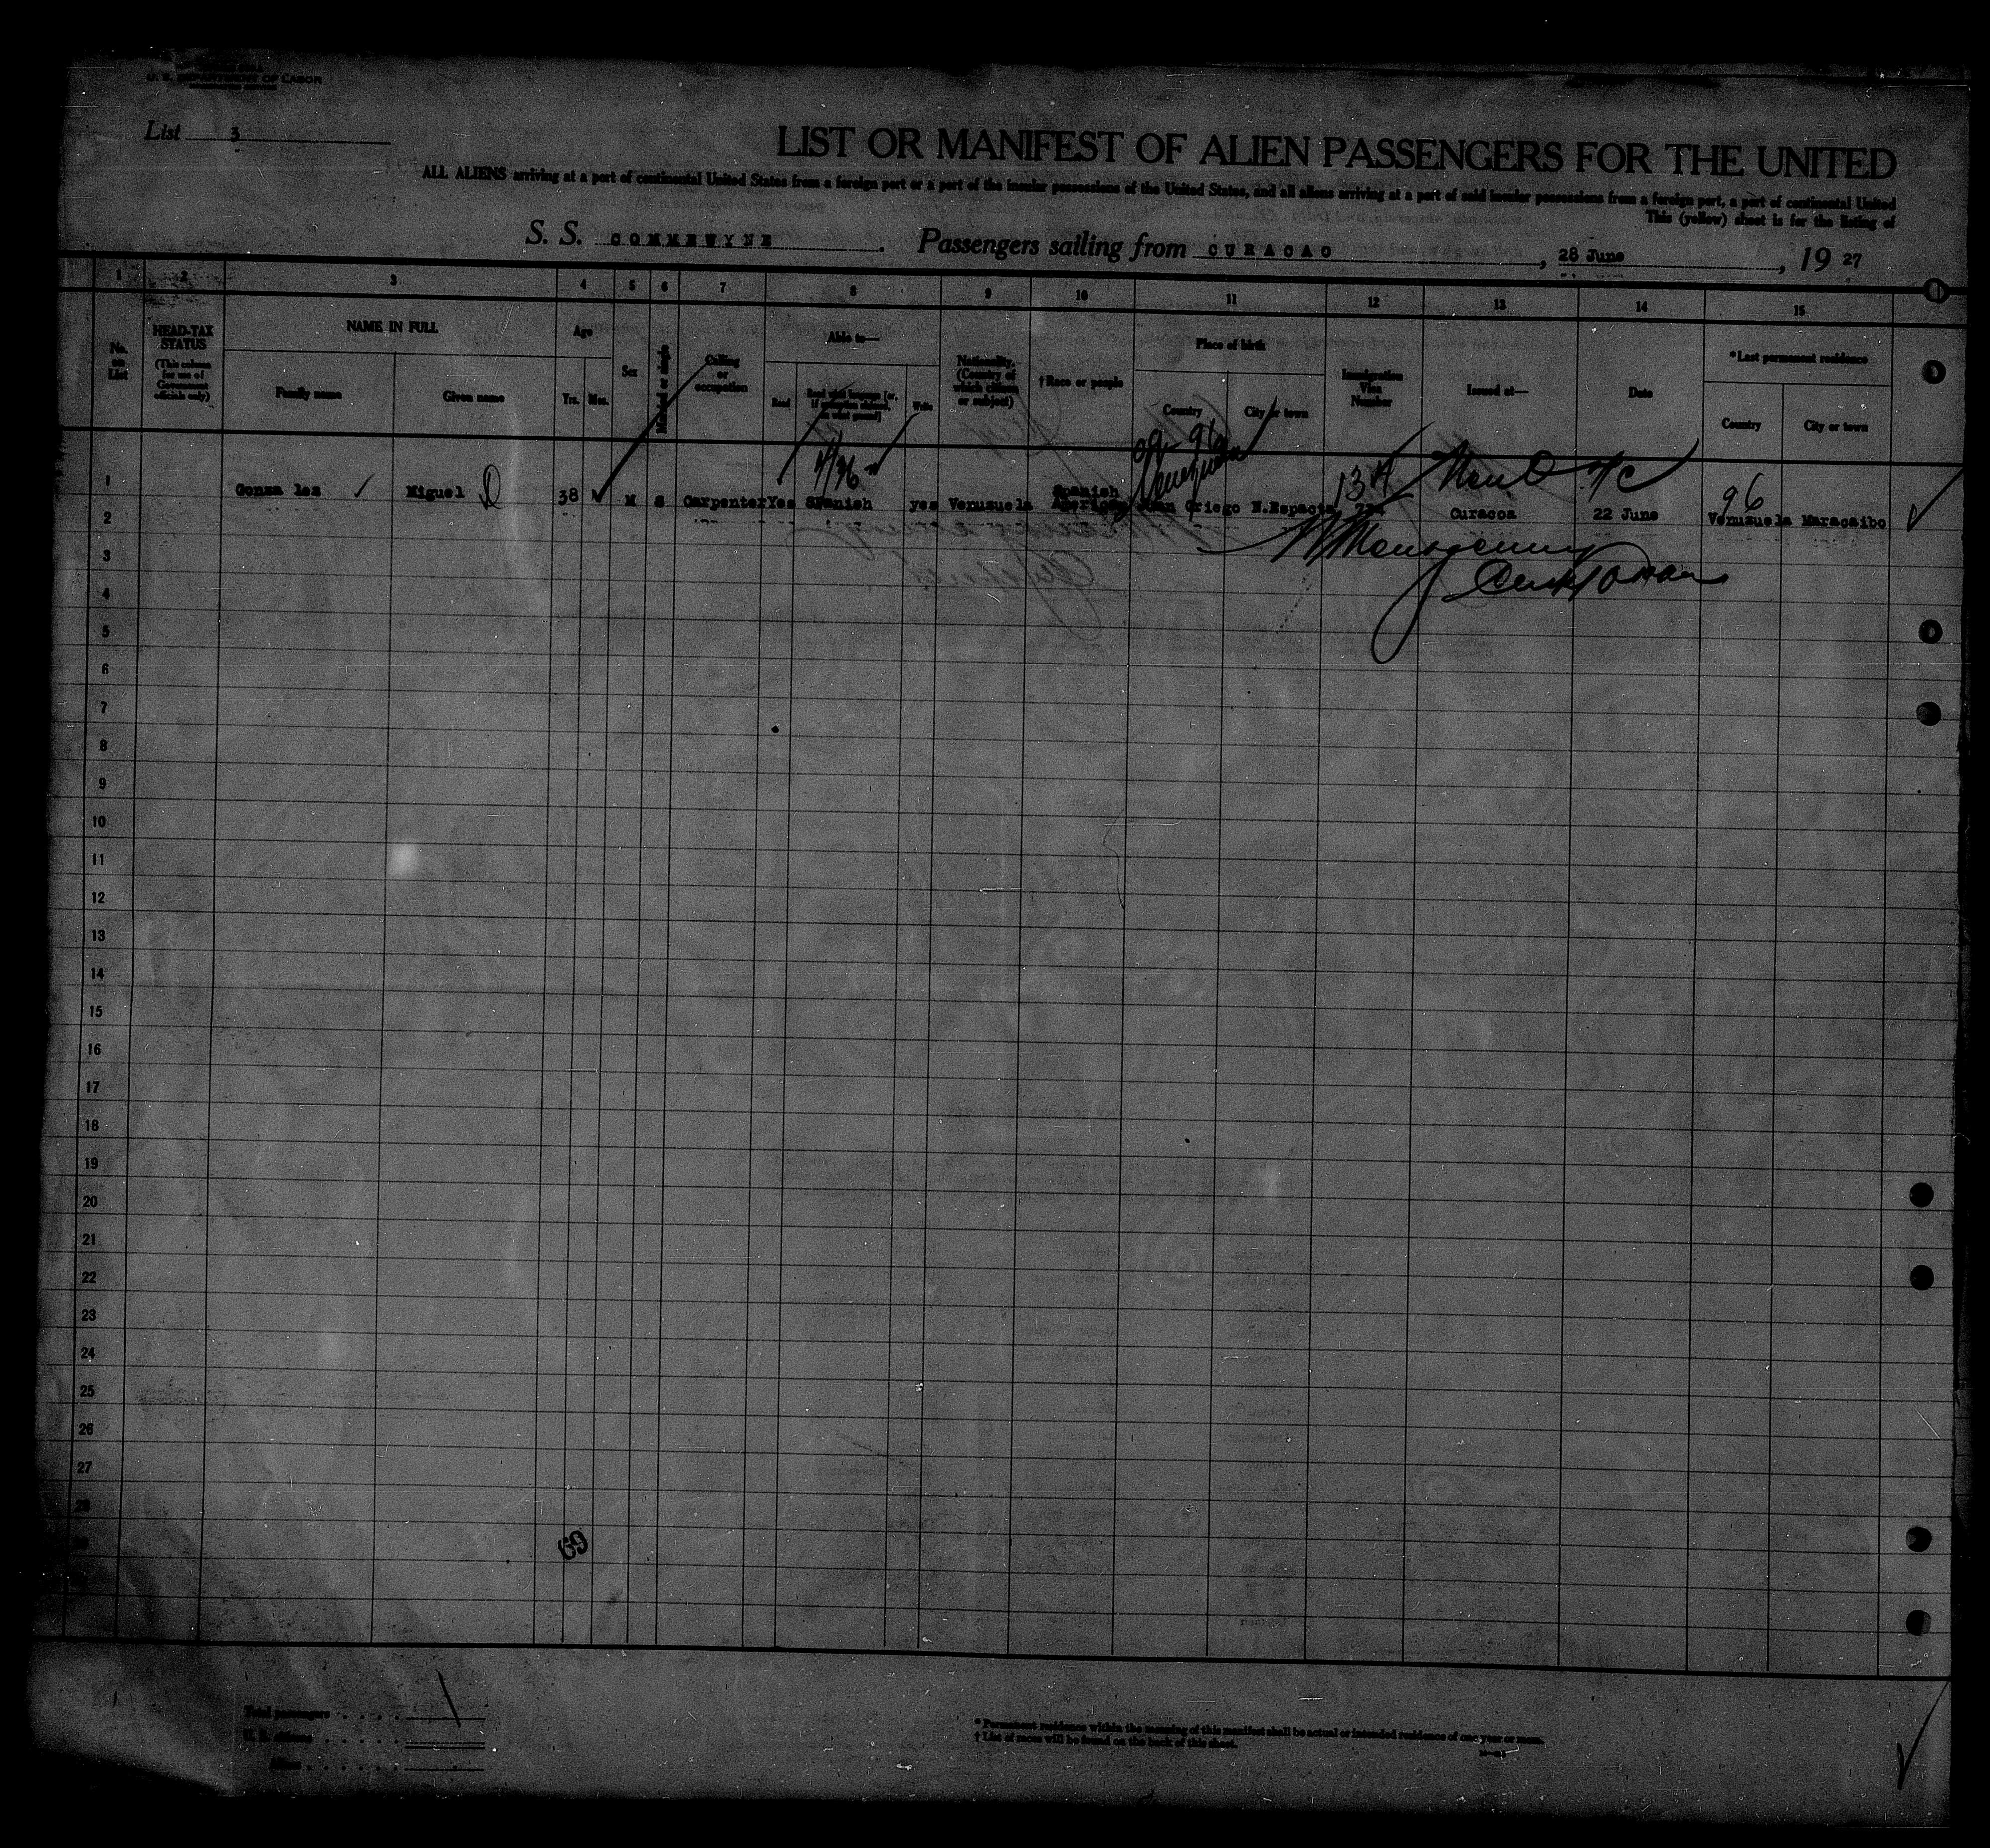 U. S. DEPARTMENT OF LABOR
List 3
LIST OR MANIFEST OF ALIEN PASSENGERS FOR THE UNITED
ALL ALIENS arriving at a port of continental United States from a foreign port or a port of the insular possessions of the United States, and all aliens arriving at a port of said insular possessions from a foreign port, a port of continental United
This (yellow) sheet is for the listing of
S. S. COMMEWYNE. Passengers sailing from CURACAO, 28 June, 19 27
1 2 3 4 5 6 7 8 9 10 11 12 13 14 15
No. on List
HEAD-TAX STATUS
(This column for use of Government officials only)
NAME IN FULL
Family name
Given name
Age
Yrs. Mos.
Sex
Married or single
Calling or occupation
Able to—
Read
Read what language [or, if exemption claimed, on what ground]
Write
Nationality. (Country of which citizen or subject)
†Race or people
Place of birth
Country
City or town
Immigration Visa Number
Issued at—
Date
*Last permanent residence
Country
City or town
4/96
09 96
Venezuela
13A
96
1 Gonza les Miguel 38 M S Carpenter Yes Spanish yes Venuzuela Spanish American Juan Griego N.Espacta 734 Curacoa 22 June Venuzuela Maracaibo
2
3
4
5
6
7
8
9
10
11
12
13
14
15
16
17
18
19
20
21
22
23
24
25
26
27
28
69
Total passengers
U. S. citizens
Aliens
* Permanent residence within the meaning of this manifest shall be actual or intended residence of one year or more.
† List of races will be found on the back of this sheet.